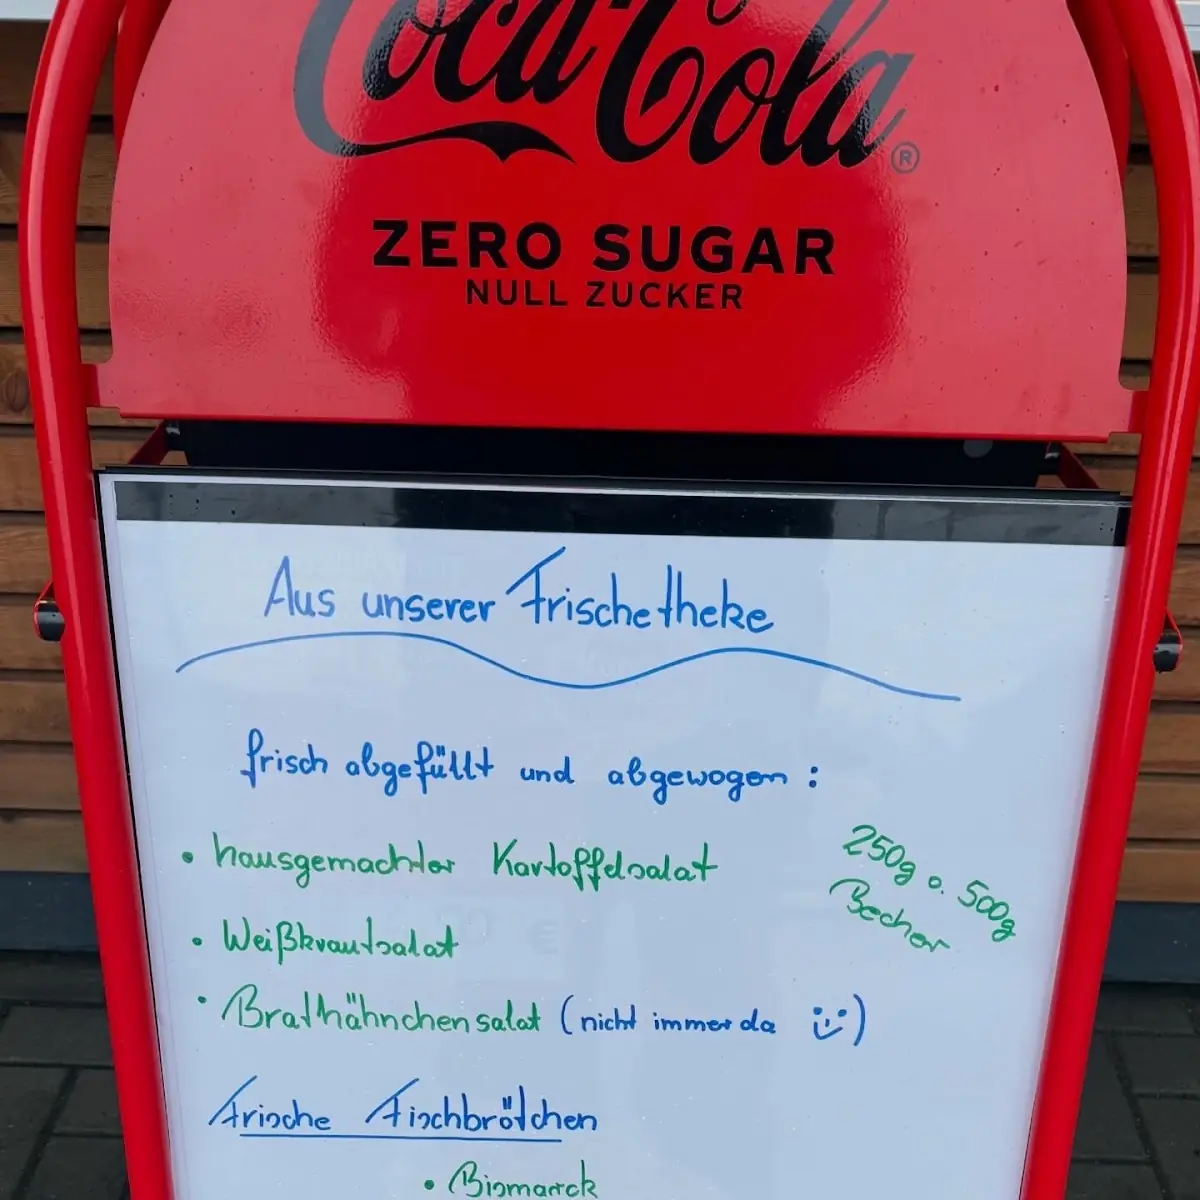 Coca-Cola®
ZERO SUGAR
NULL ZUCKER
Aus unserer Frischetheke
frisch abgefüllt und abgewogen :
• hausgemachter Kartoffelsalat
250g o. 500g
Becher
• Weißkrautsalat
• Brathähnchensalat (nicht immer da ü)
Frische Fischbrötchen
• Bismarck